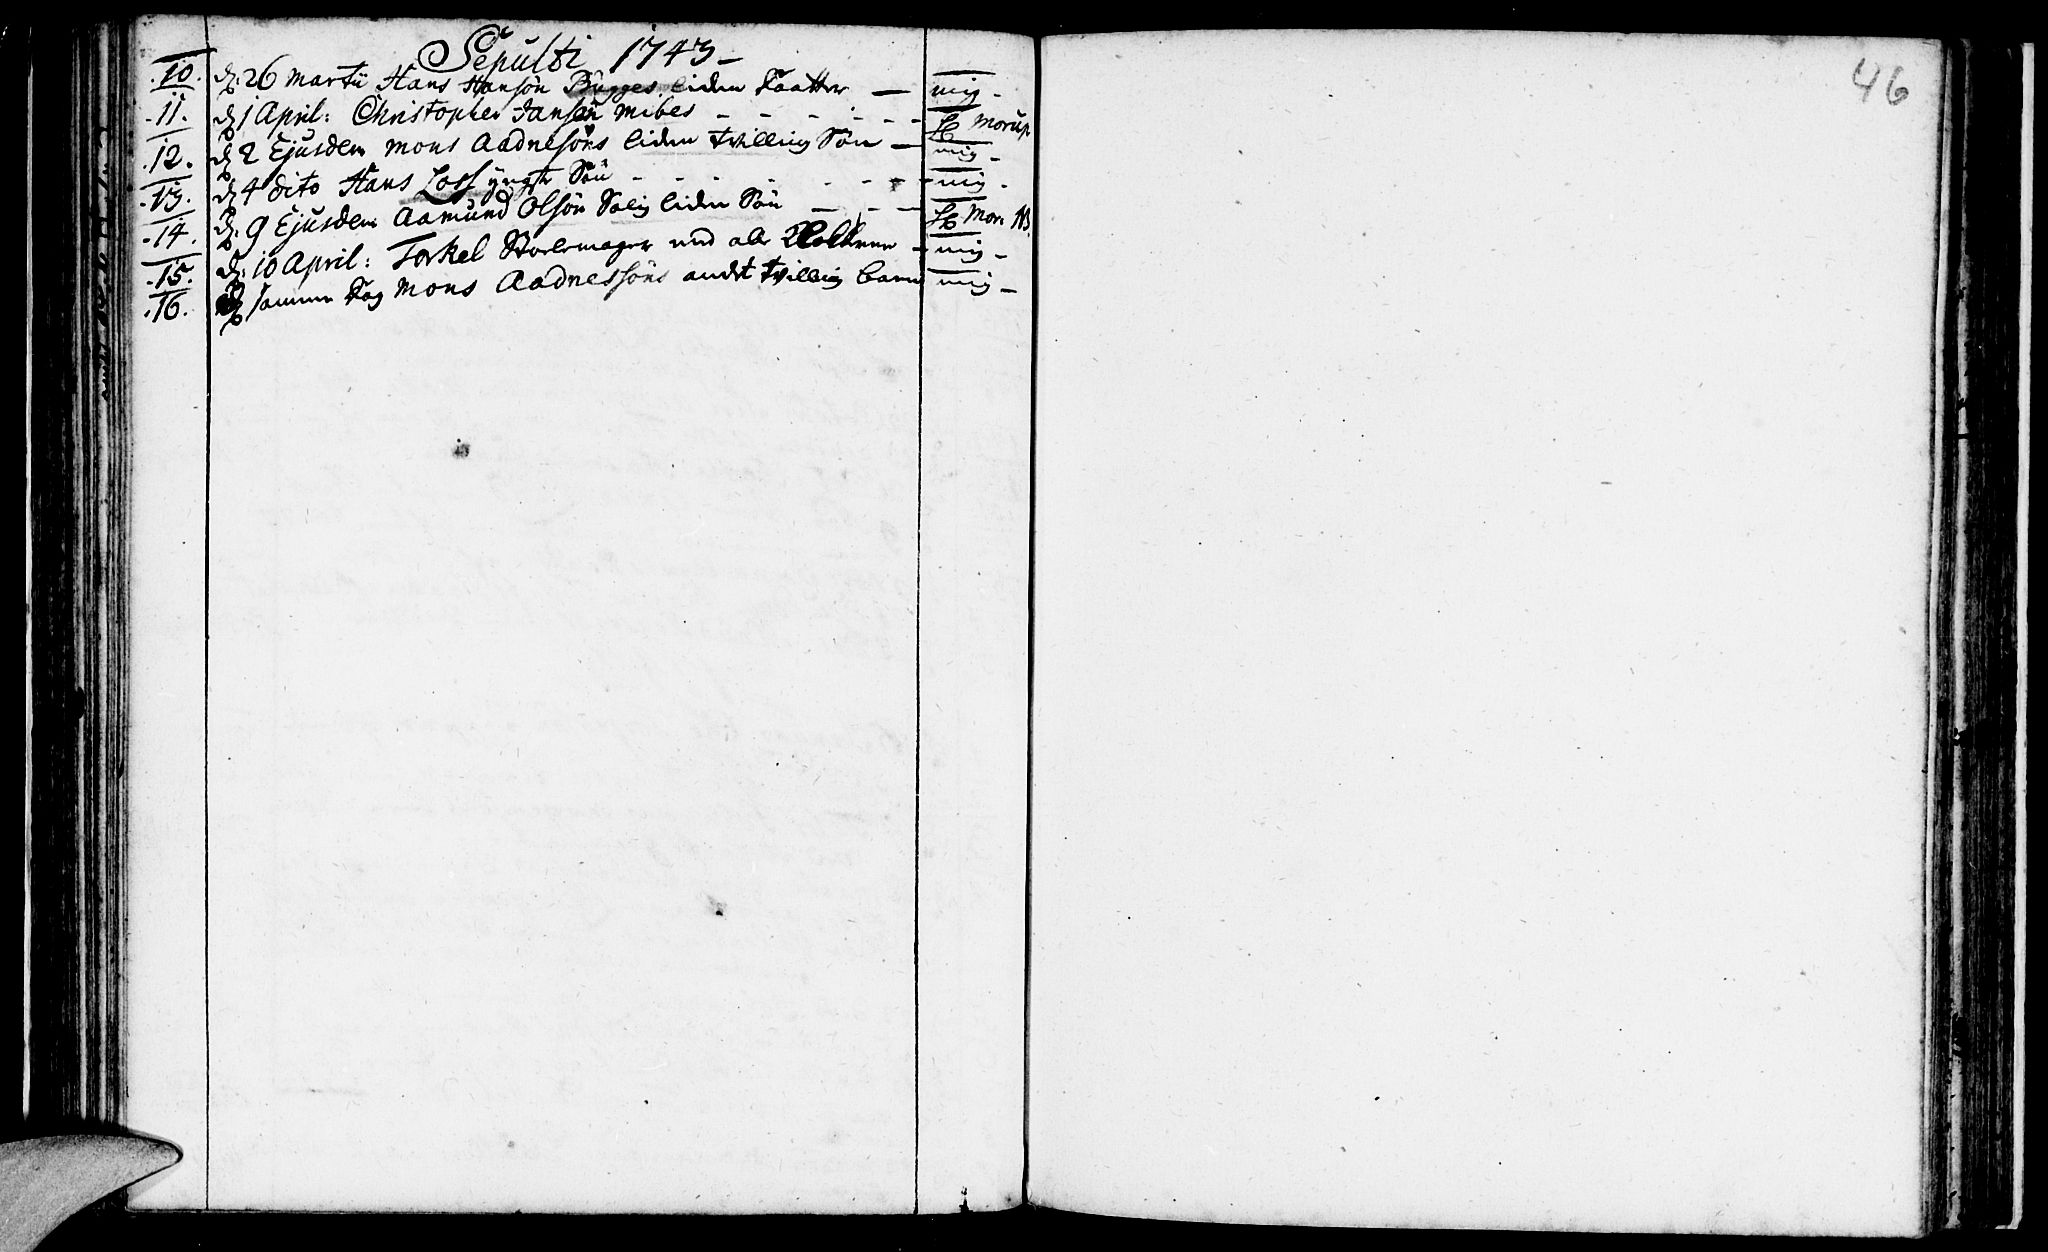 Sepulti 1743 –
.10. d. 26 Martii Hans Hansøn Bugges liden Daatter — mig –
.11. d 1 April: Christopher Jansen Mibes – – – – – – H Morup
.12. d 2 Ejusdem Mons Aadnesøns liden Tvilling Søn — mig –
.13. d 4 dito Hans Loss yngste Søn – – – – – – – mig –
.14. d. 9 Ejusdem Aamund Olsøn Solig liden Søn – – – H Mor: NB.
.15. d. 10 April: Torkel Stolemager med alle Klokkerne – mig –
.16. samme Dag Mons Aadnessøns andet Tvilling barn mig –
46